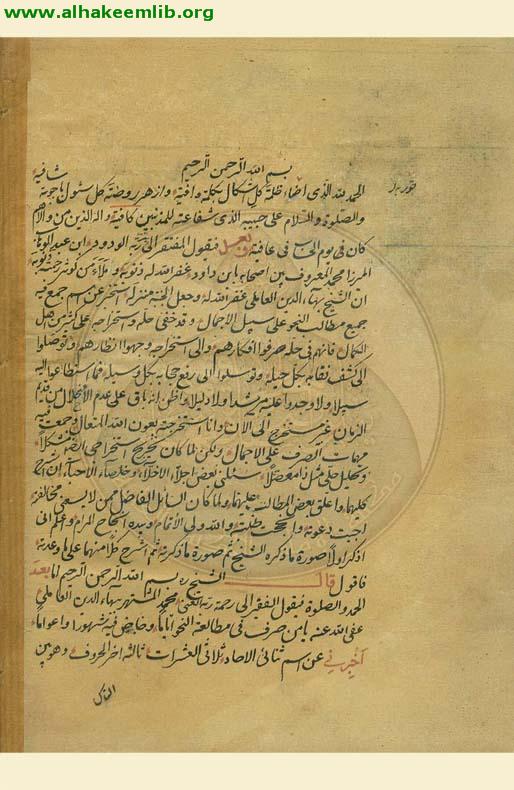 www.alhakeemlib.org
بسم الله الرحمن الرحيم
الحمد لله الذى اضاء ظلمة كل اشكال بكلمة وافية وازهر روضة كل سئول باجوبة شافية
والصلوة والسلام على حبيبه الذى شفاعته للمذنبين كافية واله الذين من والاهم
كان فى يوم فى عافية وبعد فيقول المفتقر الى ربه الودود ابن عبد الوهاب
المرزا محمد المعروف بين اصحابه بابن داود غفر الله له ذنوبه وملأ من ذنوبه
ان الشيخ بهاء الدين العاملى غفر الله له وجعل الجنة منزله استخبر عن اسم جمع فيه
جميع مطالب النحو على سبيل الاجمال وقد خفى حله واستخراجه على كثير من اهل
الكمال فانهم فى حله صرفوا افكارهم والى استخراجه وجهوا انظارهم وتوصلوا
الى كشف نقابه بكل حيلة وتوسلوا الى رفع حجابه بكل وسيلة فما استطاعوا اليه
سبيلا ولا وجدوا عليه مرشدا ولا دليلا باق على عدم الانحلال من قديم
الزمان غير مستخرج الى الآن وانا استخرجته بعون الله المتعال وجمعت فيه
مهمات الصرف على الاجمال ولكن لما كان استخراجى ايضا مشكلا
وتحليل حلى مثل ذا معضلا سئلنى بعض اجلاء الاخلاء وخلصاء الاحباء ان
كليهما واعلق بعض المطالب عليهما ولما كان السائل الفاضل ممن لا يسعنى مخالفته
اجبت دعوته وانجحت طلبته والله ولى الاتمام وبيده انجاح المرام واعلم انى
اذكر اولا صورة ما ذكره الشيخ ثم صورة ما ذكرته ثم اشرح كلا منهما على ما وعدته
فاقول قال الشيخ بسم الله الرحمن الرحيم اما بعد
الحمد والصلوة فيقول الفقير الى رحمة ربه الغنى محمد المشتهر ببهاء الدين العاملى
عفى الله عنه يا من صرف فى مطالعة النحو اياما وخاض فيه شهورا واعواما
أخبرنى عن اسم ثنائى الاحاد ثلاثى العشرات ثالثه اخر الحروف وهو بين